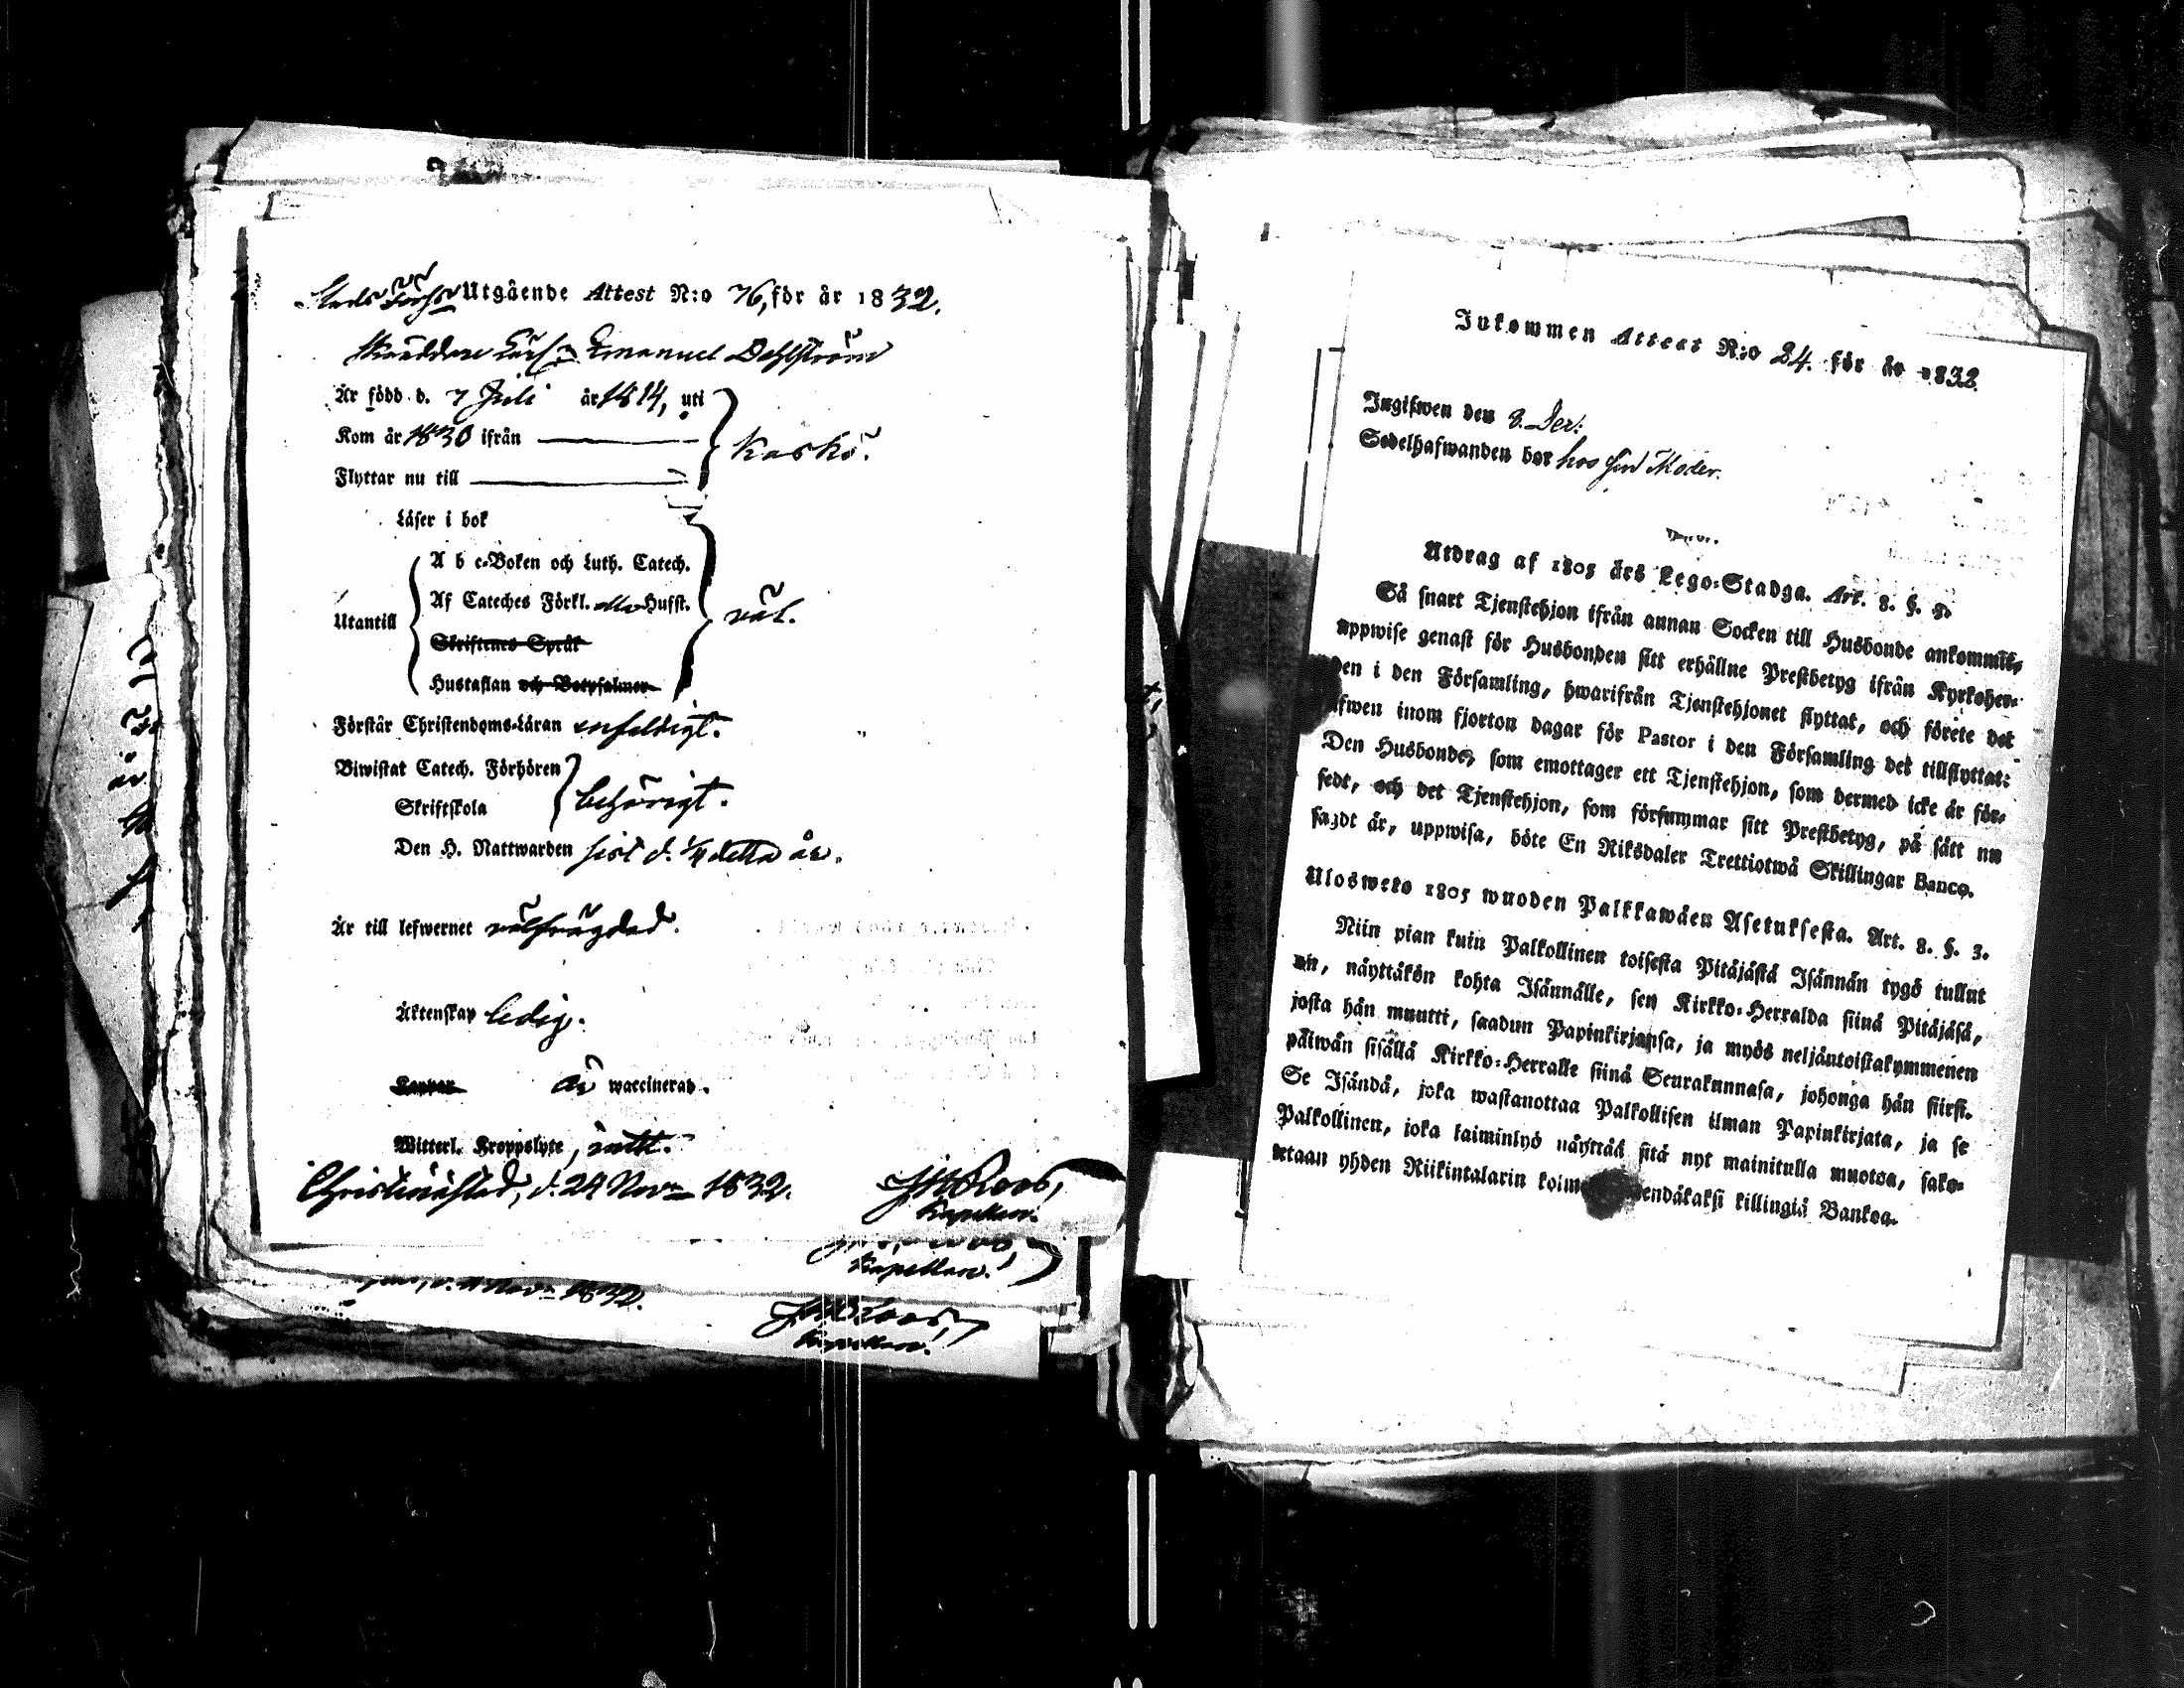 Stads Förs. Utgående Attest N:o 76, för år 1832.
Skräddare Lärl:n Emanuel Dahlström
Är född d. 7 Juli år 1814, uti
Kom år 1830 ifrån
Kaskö.
Flyttar nu till
Läser i bok
A b c-Boken och Luth. Catech.
Af Cateches Förkl. alla Hufst.
Utantill
väl.
Skriftenes Språk
Hustaflan och Botpsalmer
Förstår Christendoms-Läran enfaldigt.
Biwistat Catech. Förhören
Skriftskola
behörigt.
Den H. Nattwarden sist d. 1/4 detta år.
Är till lefwernet välfrägdad.
Äktenskap ledig.
Koppor är waccinerad.
Witterl. Kroppslyte, intet.
Christinæstad, d. 24 Nov. 1832.
Roos,
Kapellan.
Kapellan.
Nov. 1832.
Roos,
Kapellan.
Inkommen Attest N:o 24. för år 1832.
Ingifwen den 8. Der:
Sedelhafwanden bor hos sin Moder.
Utdrag af 1805 års Lego-Stadga. Art. 8. §. 3.
Så snart Tjenstehjon ifrån annan Socken till Husbonde ankommit,
uppwise genast för Husbonden sitt erhållne Prestbetyg ifrån Kyrkoher-
den i den Församling, hwarifrån Tjenstehjonet flyttat, och förete det
äfwen inom fjorton dagar för Pastor i den Församling det tillflyttat:
Den Husbonde, som emottager ett Tjenstehjon, som dermed icke är för-
sedt, och det Tjenstehjon, som försummar sitt Prestbetyg, på sätt nu
sagdt är, uppwisa, böte En Riksdaler Trettiotwå Skillingar Banco.
Ulosweto 1805 wuoden Palkkawäen Asetuksesta. Art. 8. §. 3.
Niin pian kuin Palkollinen toisesta Pitäjästä Isännän tygö tullut
on, näyttäkön kohta Isännälle, sen Kirkko-Herralda siinä Pitäjäsä,
josta hän muutti, saadun Papinkirjansa, ja myös neljäntoistakymmenen
päiwän sisällä Kirkko-Herralle siinä Seurakunnasa, johonga hän siirsi.
Se Isändä, joka wastanottaa Palkollisen ilman Papinkirjata, ja se
Palkollinen, joka laiminlyö näyttää sitä nyt mainitulla muotoa, sako-
tetaan yhden Riikintalarin kolme endäkaksi killingiä Bankoa.